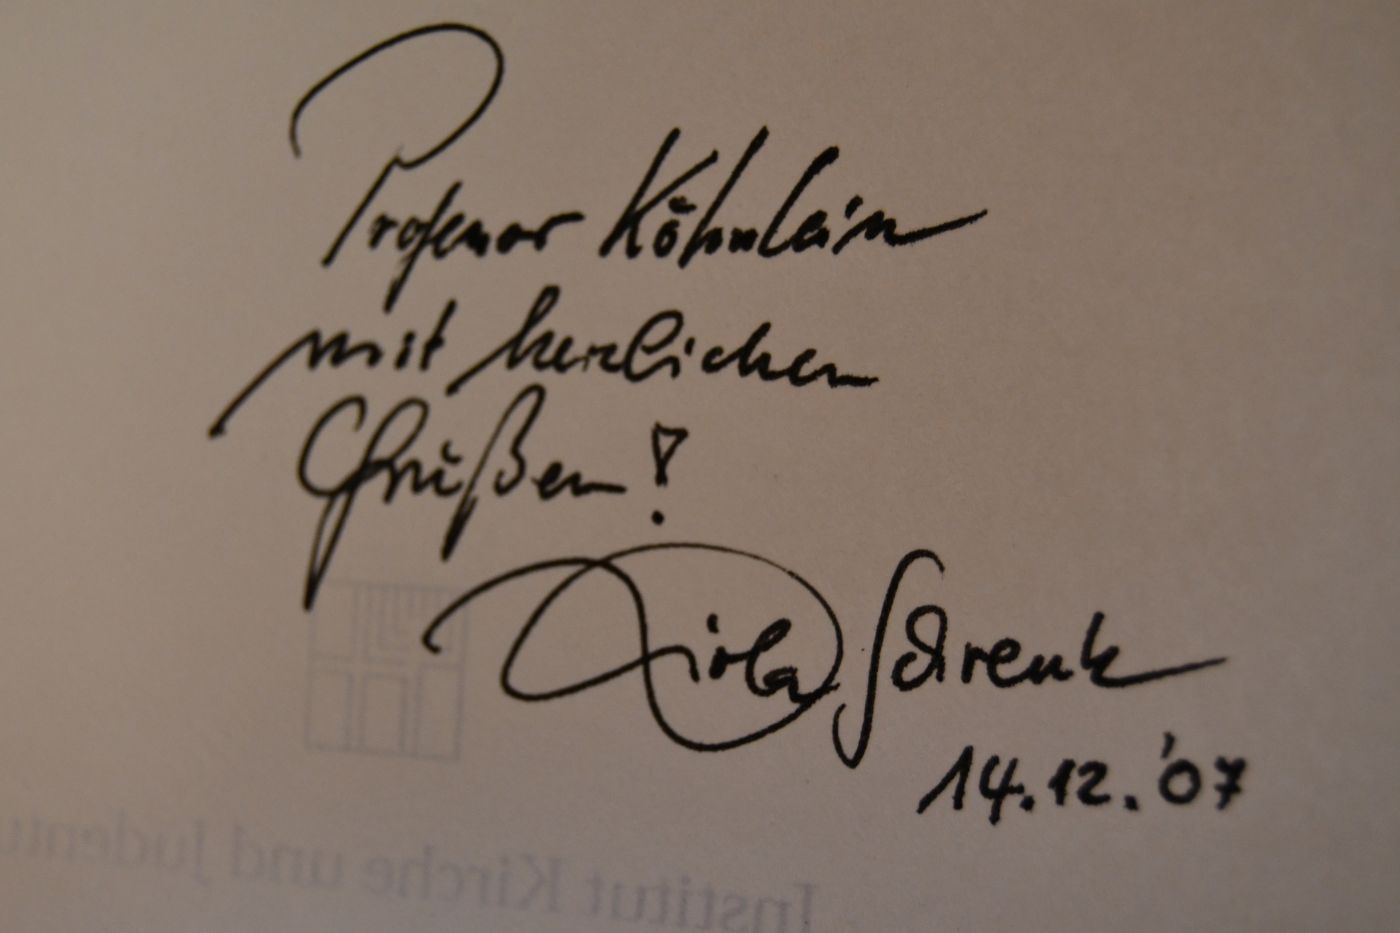 Professor Köhnlein
mit herzlichen
Grüßen!
Viola Schrenk
14.12.'07
Institut Kirche und Judentu